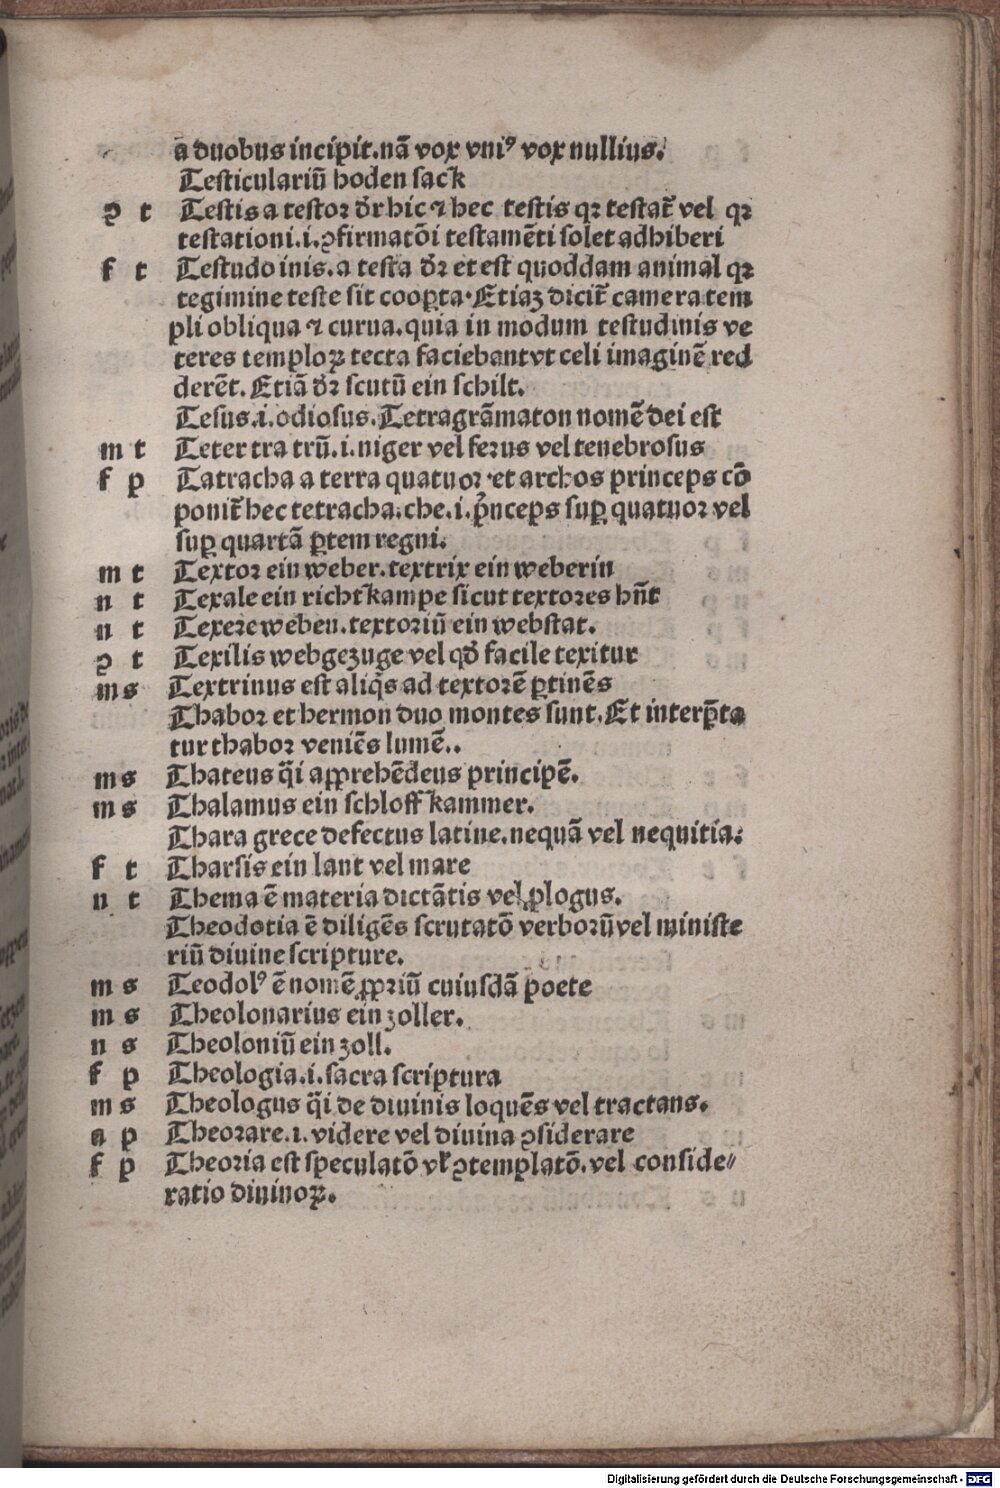 a duobus incipit. nā vox vniꝰ vox nullius.
Testiculariū hoden sack
ꝯ t Testis a testor dr̄ hic ⁊ hec testis qꝛ testat̄ vel qꝛ
testationi .i. ꝯfirmatōi testamēti solet adhiberi
f t Testudo inis. a testa dr̄ et est quoddam animal qꝛ
tegimine teste sit cooꝑta. Etiaꝫ dicit̄ camera tem
pli obliqua ⁊ curua. quia in modum testudinis ve
teres temploꝝ tecta faciebant vt celi imaginē red
derēt. Etiā dr̄ scutū ein schilt.
Tesus .i. odiosus. Tetragrāmaton nomē dei est
m t Teter tra trū .i. niger vel ferus vel tenebrosus
f p Tatracha a terra quatuor et archos princeps cō
ponit̄ hec tetracha. che .i. pͥnceps suꝑ quatuor vel
suꝑ quartā ꝑtem regni.
m t Textor ein weber. textrix ein weberin
n t Texale ein richtkampe sicut textores hn̄t
n t Texere weben. textoriū ein webstat.
ꝯ t Texilis webgezuge vel qd̓ facile texitur
m s Textrinus est aliqͥs ad textorē ꝑtinēs
Thabor et hermon duo montes sunt. Et interp̄ta
tur thabor veniēs lumē..
m s Thateus q̄i apprehēdeus principē.
m s Thalamus ein schloff kammer.
Thara grece defectus latine. nequā vel nequitia.
f t Tharsis ein lant vel mare
n t Thema ē materia dictātis vel ꝓlogus.
Theodotia ē diligēs scrutatō verborū vel ministe
riū diuine scripture.
m s Teodolꝰ ē nomē ꝓpriū cuiusdā poete
m s Theolonarius ein zoller.
n s Theoloniū ein zoll.
f p Theologia .i. sacra scriptura
m s Theologus q̄i de diuinis loquēs vel tractans.
a p Theorare .i. videre vel diuina ꝯsiderare
f p Theoria est speculatō vl̓ ꝯtemplatō. vel conside⸗
ratio diuinoꝝ.
Digitalisierung gefördert durch die Deutsche Forschungsgemeinschaft - DFG